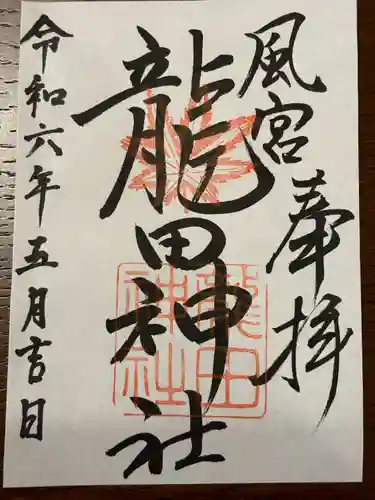 風宮
奉拝
龍田神社
龍田
神社
令和六年五月吉日